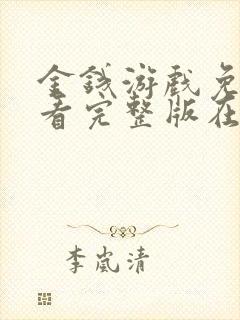 金钱游戏免
看完整版在
李岚清